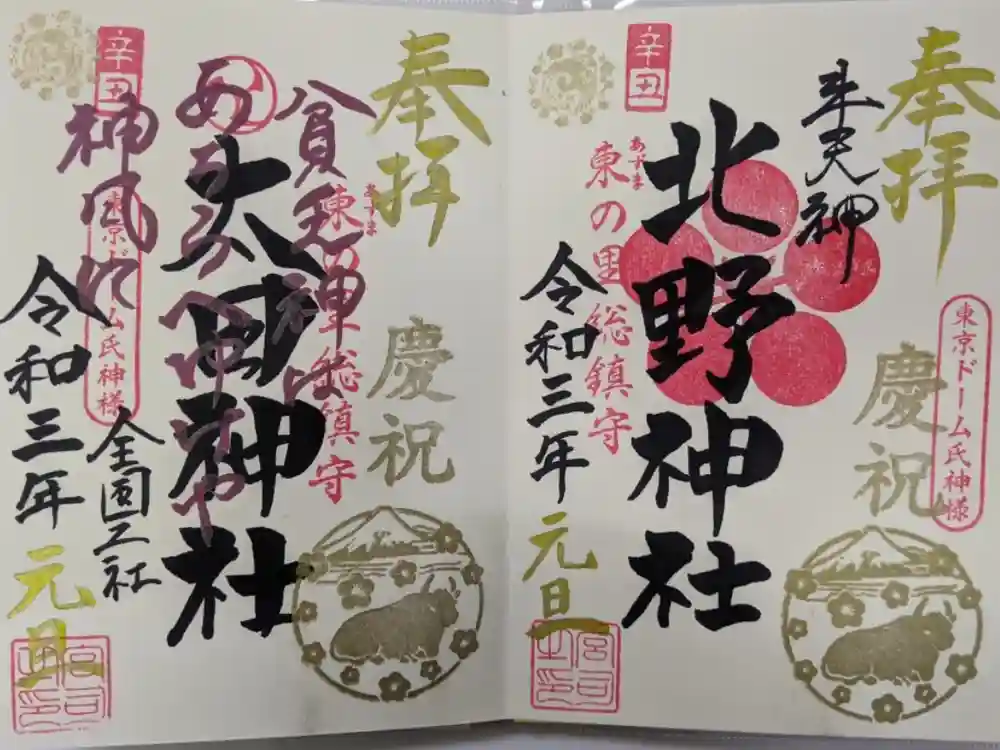 奉拝
慶祝
東京ドーム氏神様
牛天神
北野神社
あずま
東の里総鎮守
辛丑
令和三年
元旦
宮司之印
奉拝
慶祝
貧乏神
あずま
東の里総鎮守
太田神社
神風に
東京ドーム氏神様
辛丑
全国
社
令和三年
元旦
宮司之印